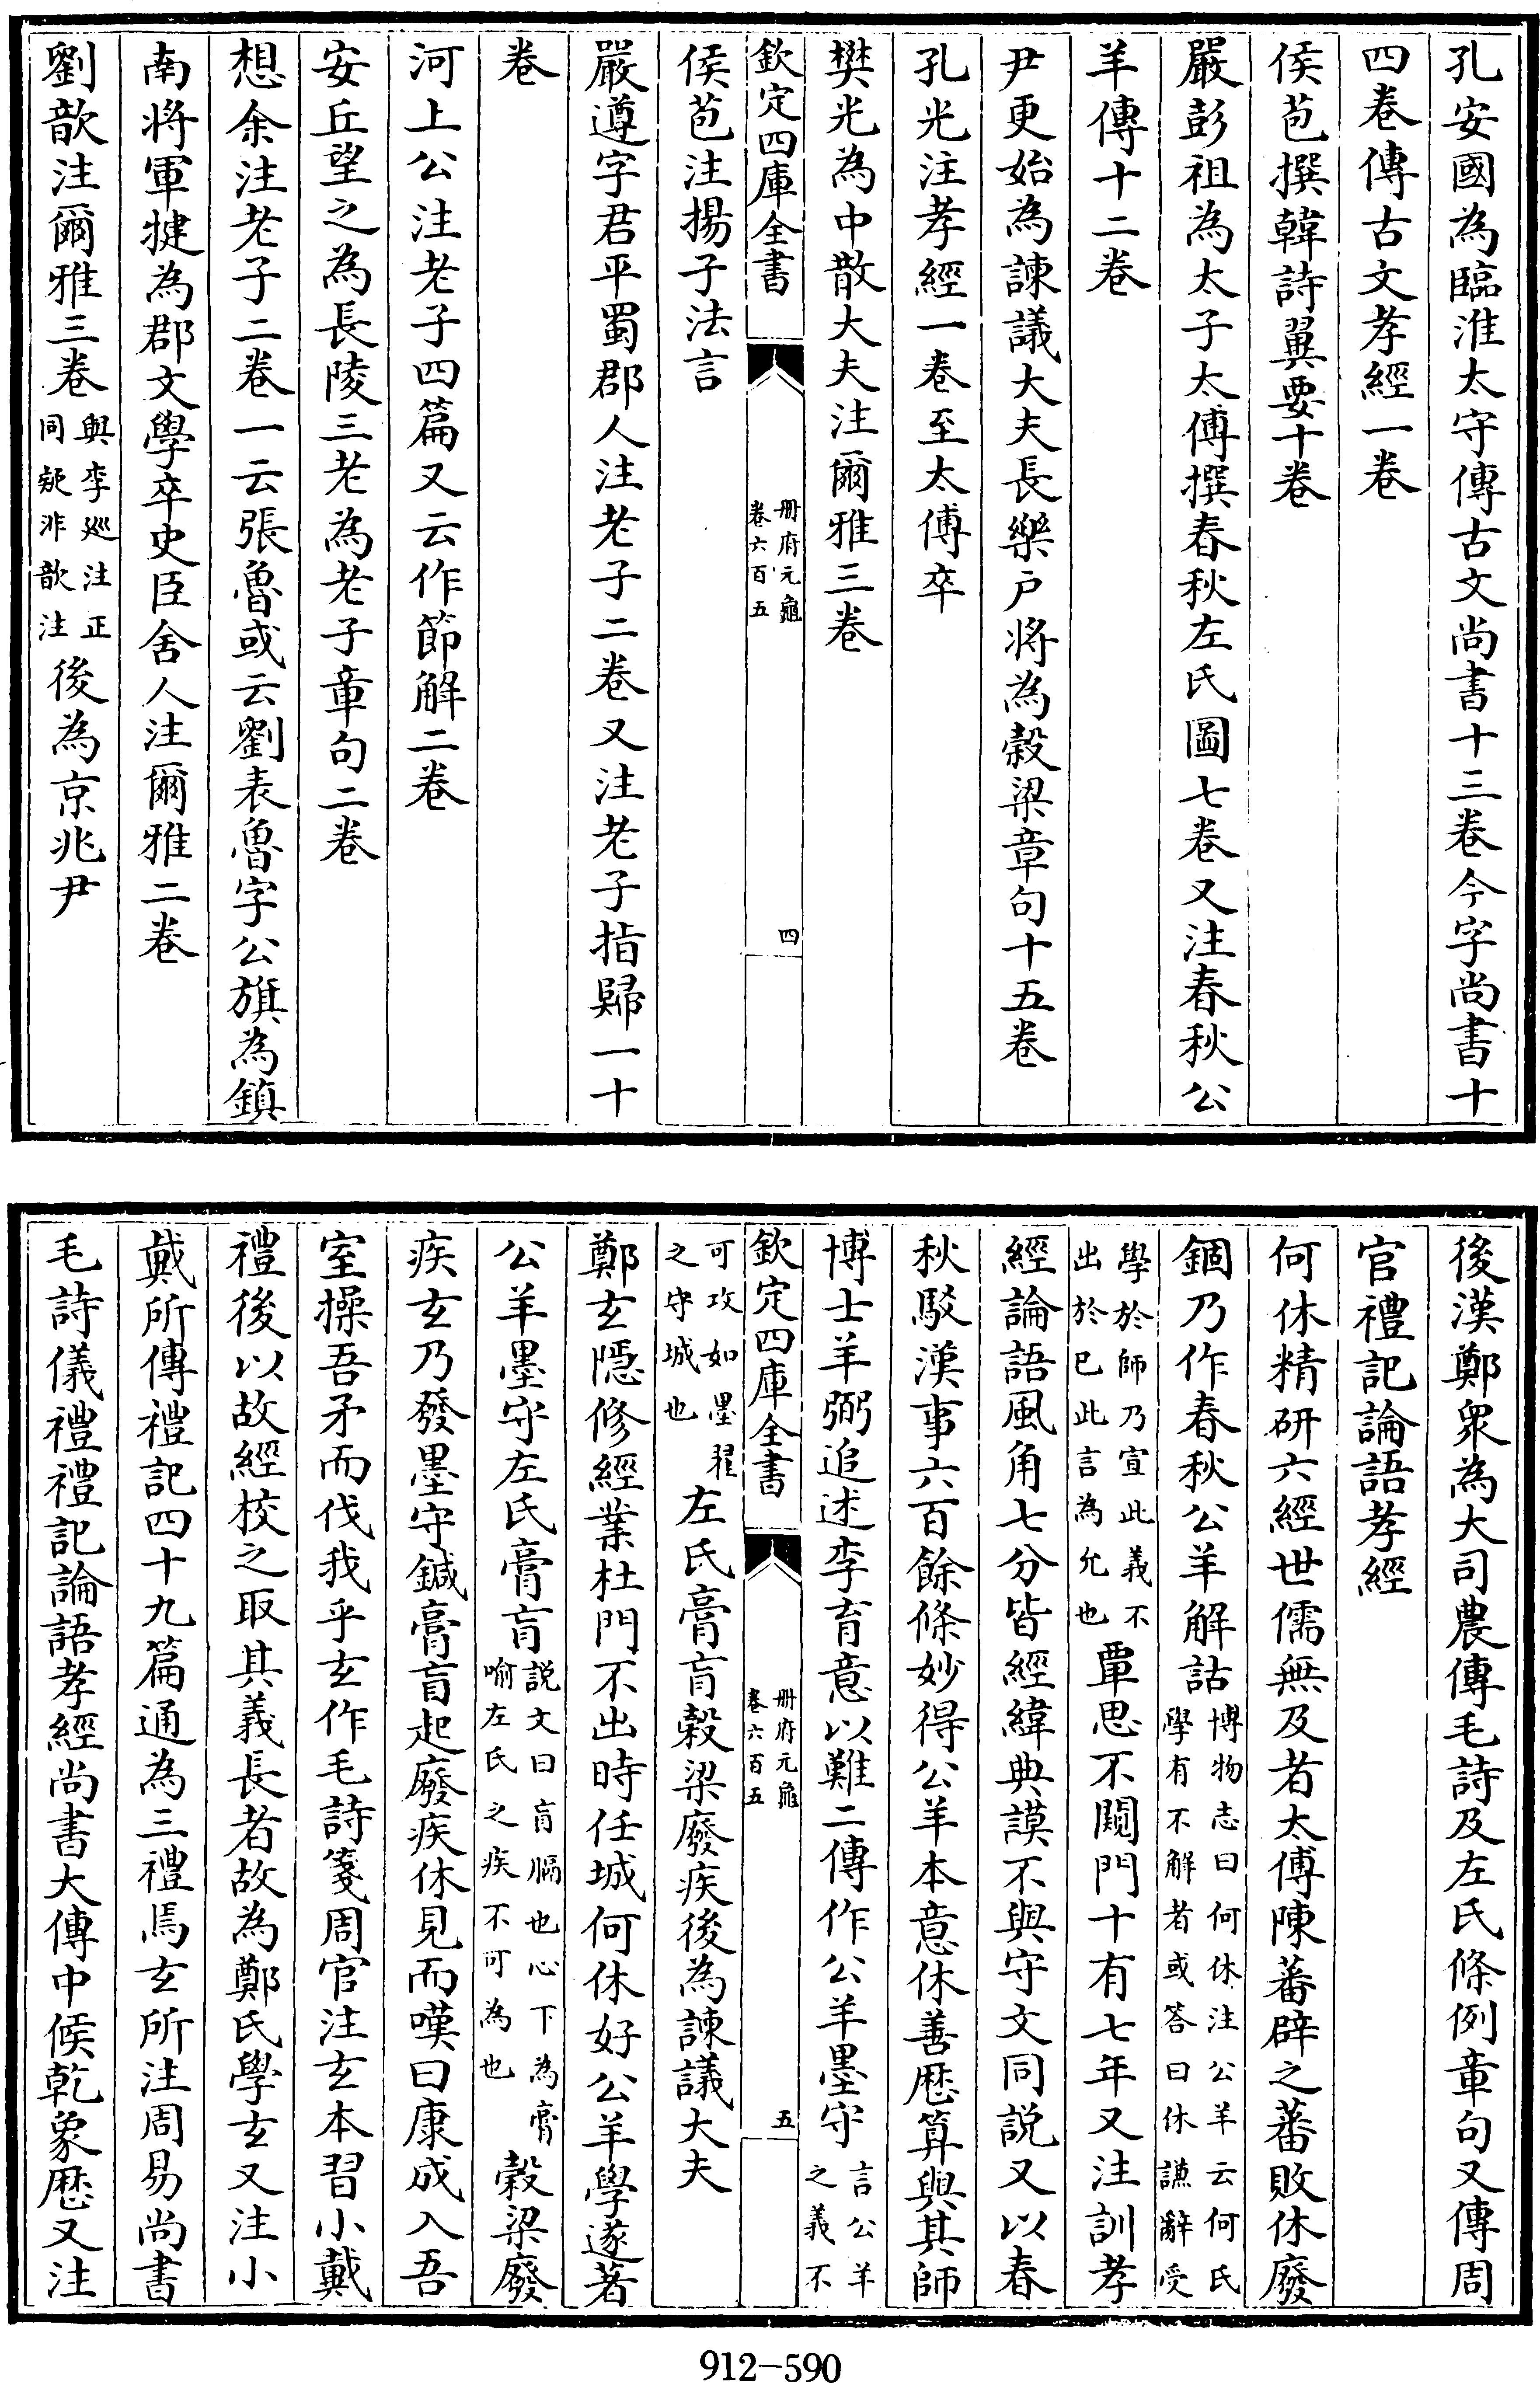 孔安國為臨淮太守傳古文尚書十三卷今字尚書十
四卷傳古文孝經一卷
侯苞撰韓詩翼要十卷
嚴彭祖為太子太傅撰春秋左氏圖七卷又注春秋公
羊傳十二卷
尹更始為諫議大夫長樂户將為穀梁章句十五卷
孔光注孝經一卷至太傅卒
樊光為中散大夫注爾雅三卷
欽定四庫全書
册府元龜
卷六百五
四
侯苞注揚子法言
嚴遵字君平蜀郡人注老子二卷又注老子指歸一十
卷
河上公注老子四篇又云作節解二卷
安丘望之為長陵三老為老子章句二卷
想余注老子二卷一云張魯或云劉表魯字公旗為鎮
南將軍犍為郡文學卒史臣舍人注爾雅二卷
劉歆注爾雅三卷與李廵注正同疑非歆注後為京兆尹
後漢鄭衆為大司農傳毛詩及左氏條例章句又傳周
官禮記論語孝經
何休精研六經世儒無及者太傅陳蕃辟之蕃敗休廢
錮乃作春秋公羊解詁博物志曰何休注公羊云何氏學有不解者或答曰休謙辭受
學於師乃宣此義不出於已此言為允也覃思不闚門十有七年又注訓孝
經論語風角七分皆經緯典謨不與守文同説又以春
秋駁漢事六百餘條妙得公羊本意休善厯算與其師
博士羊弼追述李育意以難二傳作公羊墨守言公羊之義不
欽定四庫全書
册府元龜
卷六百五
五
可攻如墨翟之守城也左氏膏肓穀梁廢疾後為諫議大夫
鄭玄隱修經業杜門不出時任城何休好公羊學遂著
公羊墨守左氏膏肓説文曰肓膈也心下為膏喻左氏之疾不可為也穀梁廢
疾玄乃發墨守鍼膏肓起廢疾休見而嘆曰康成入吾
室操吾矛而伐我乎玄作毛詩箋周官注玄本習小戴
禮後以故經校之取其義長者故為鄭氏學玄又注小
戴所傳禮記四十九篇通為三禮焉玄所注周易尚書
毛詩儀禮禮記論語孝經尚書大傳中候乾象厯又注
912-590